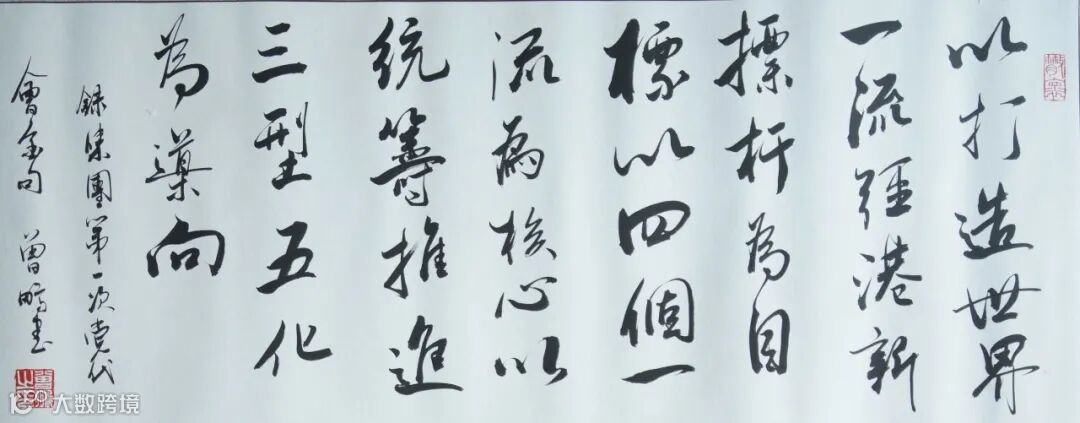 以打造世界
一流强港新
標杆為目
標以四個一
流為核心以
統籌推進
三型五化
為導向
録集團第一次党代
會金句 曾鸣書
大数跨境